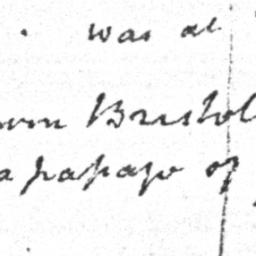 was at
Bristol
a passage of